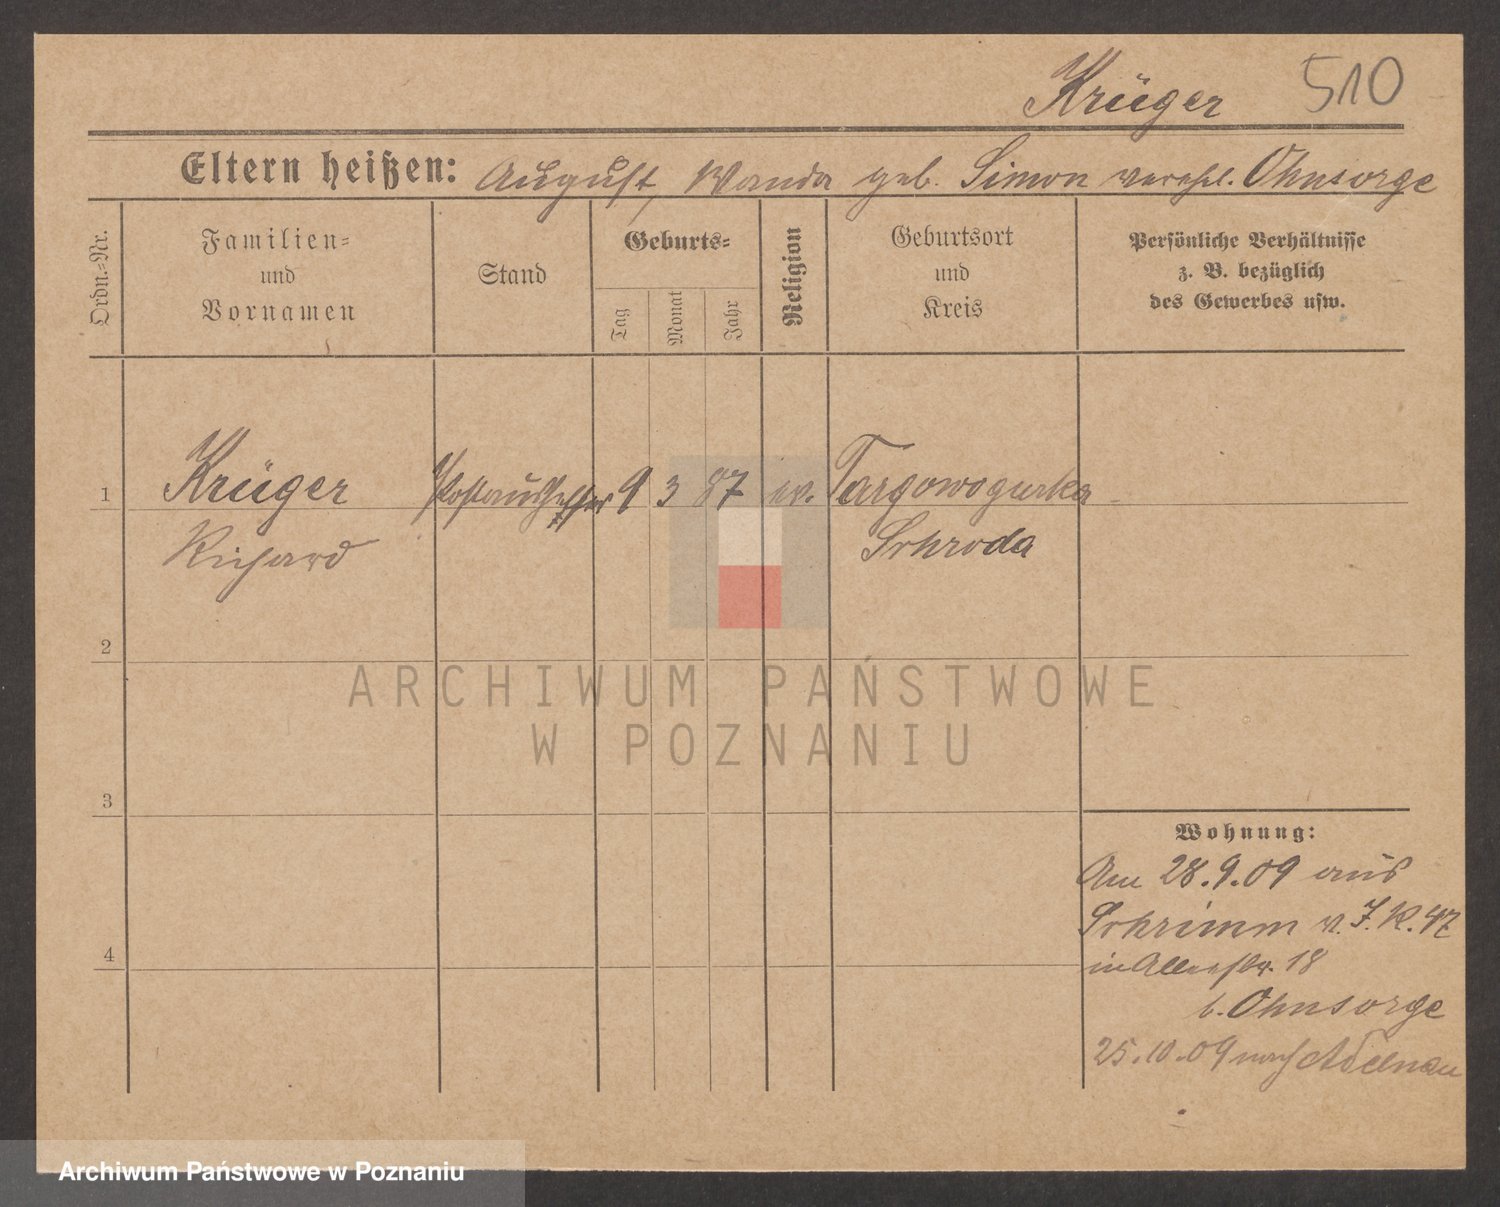 Krüger 510
Eltern heißen: August, Wanda geb. Simon verehel. Ohnsorge
Ordn.-Nr.
Familien-
und
Vornamen
Stand
Geburts-
Tag
Monat
Jahr
Religion
Geburtsort
und
Kreis
Persönliche Verhältnisse
z. B. bezüglich
des Gewerbes usw.
1 Krüger Postaushelfer 9 3 87 ev. Targowogurka
Richard Schroda
2
3
4
Wohnung:
Am 28.9.09 aus
Schrimm v. I. R. 47
in Allerstr. 18
b. Ohnsorge
25.10.09 nach Adelnau
ARCHIWUM PAŃSTWOWE
W POZNANIU
Archiwum Państwowe w Poznaniu